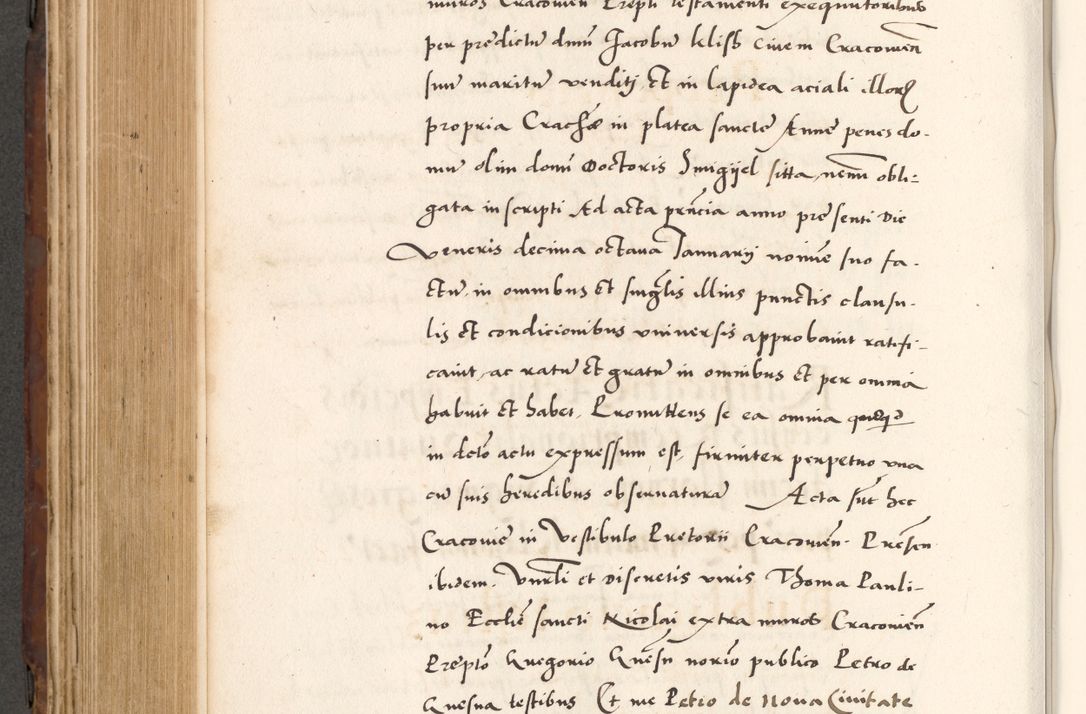 muros Cracovien Prepti testamenti exequutoribus
per predictu dnm Jacobu Klisb Civem Cracovien
suu maritu venditi, Et in lapidea aciali illor
propria Crachoe in platea sancte Anne penes do-
mu olim domi Doctoris Smigijel sitta, nemi obli-
gata inscripti Ad acta prncia anno presenti Die
Veneris decima octava Januarij noime suo fa-
ctu, in omnibus Et singlis illius punctis clausu-
lis Et condicionibus universis approbavit ratifi-
cavit, ac ratu Et gratu in omnibus Et per omnia
habuit Et habet, Promittens se ea omnia
in dcto actu expressum est, firmiter perpetuo una
cu suis heredibus observatura Acta sut hec
Cracovie in Vestibulo Pretorii Cracovien. Presen
ibidem. et Discretis viris Thoma Pauli-
no Ecclie sancti Nicolai extra muros Cracovien
Prepto Gregorio Gnesn norio publico Petro de
Gnesna testibus Et me Petro de Nova Civitate